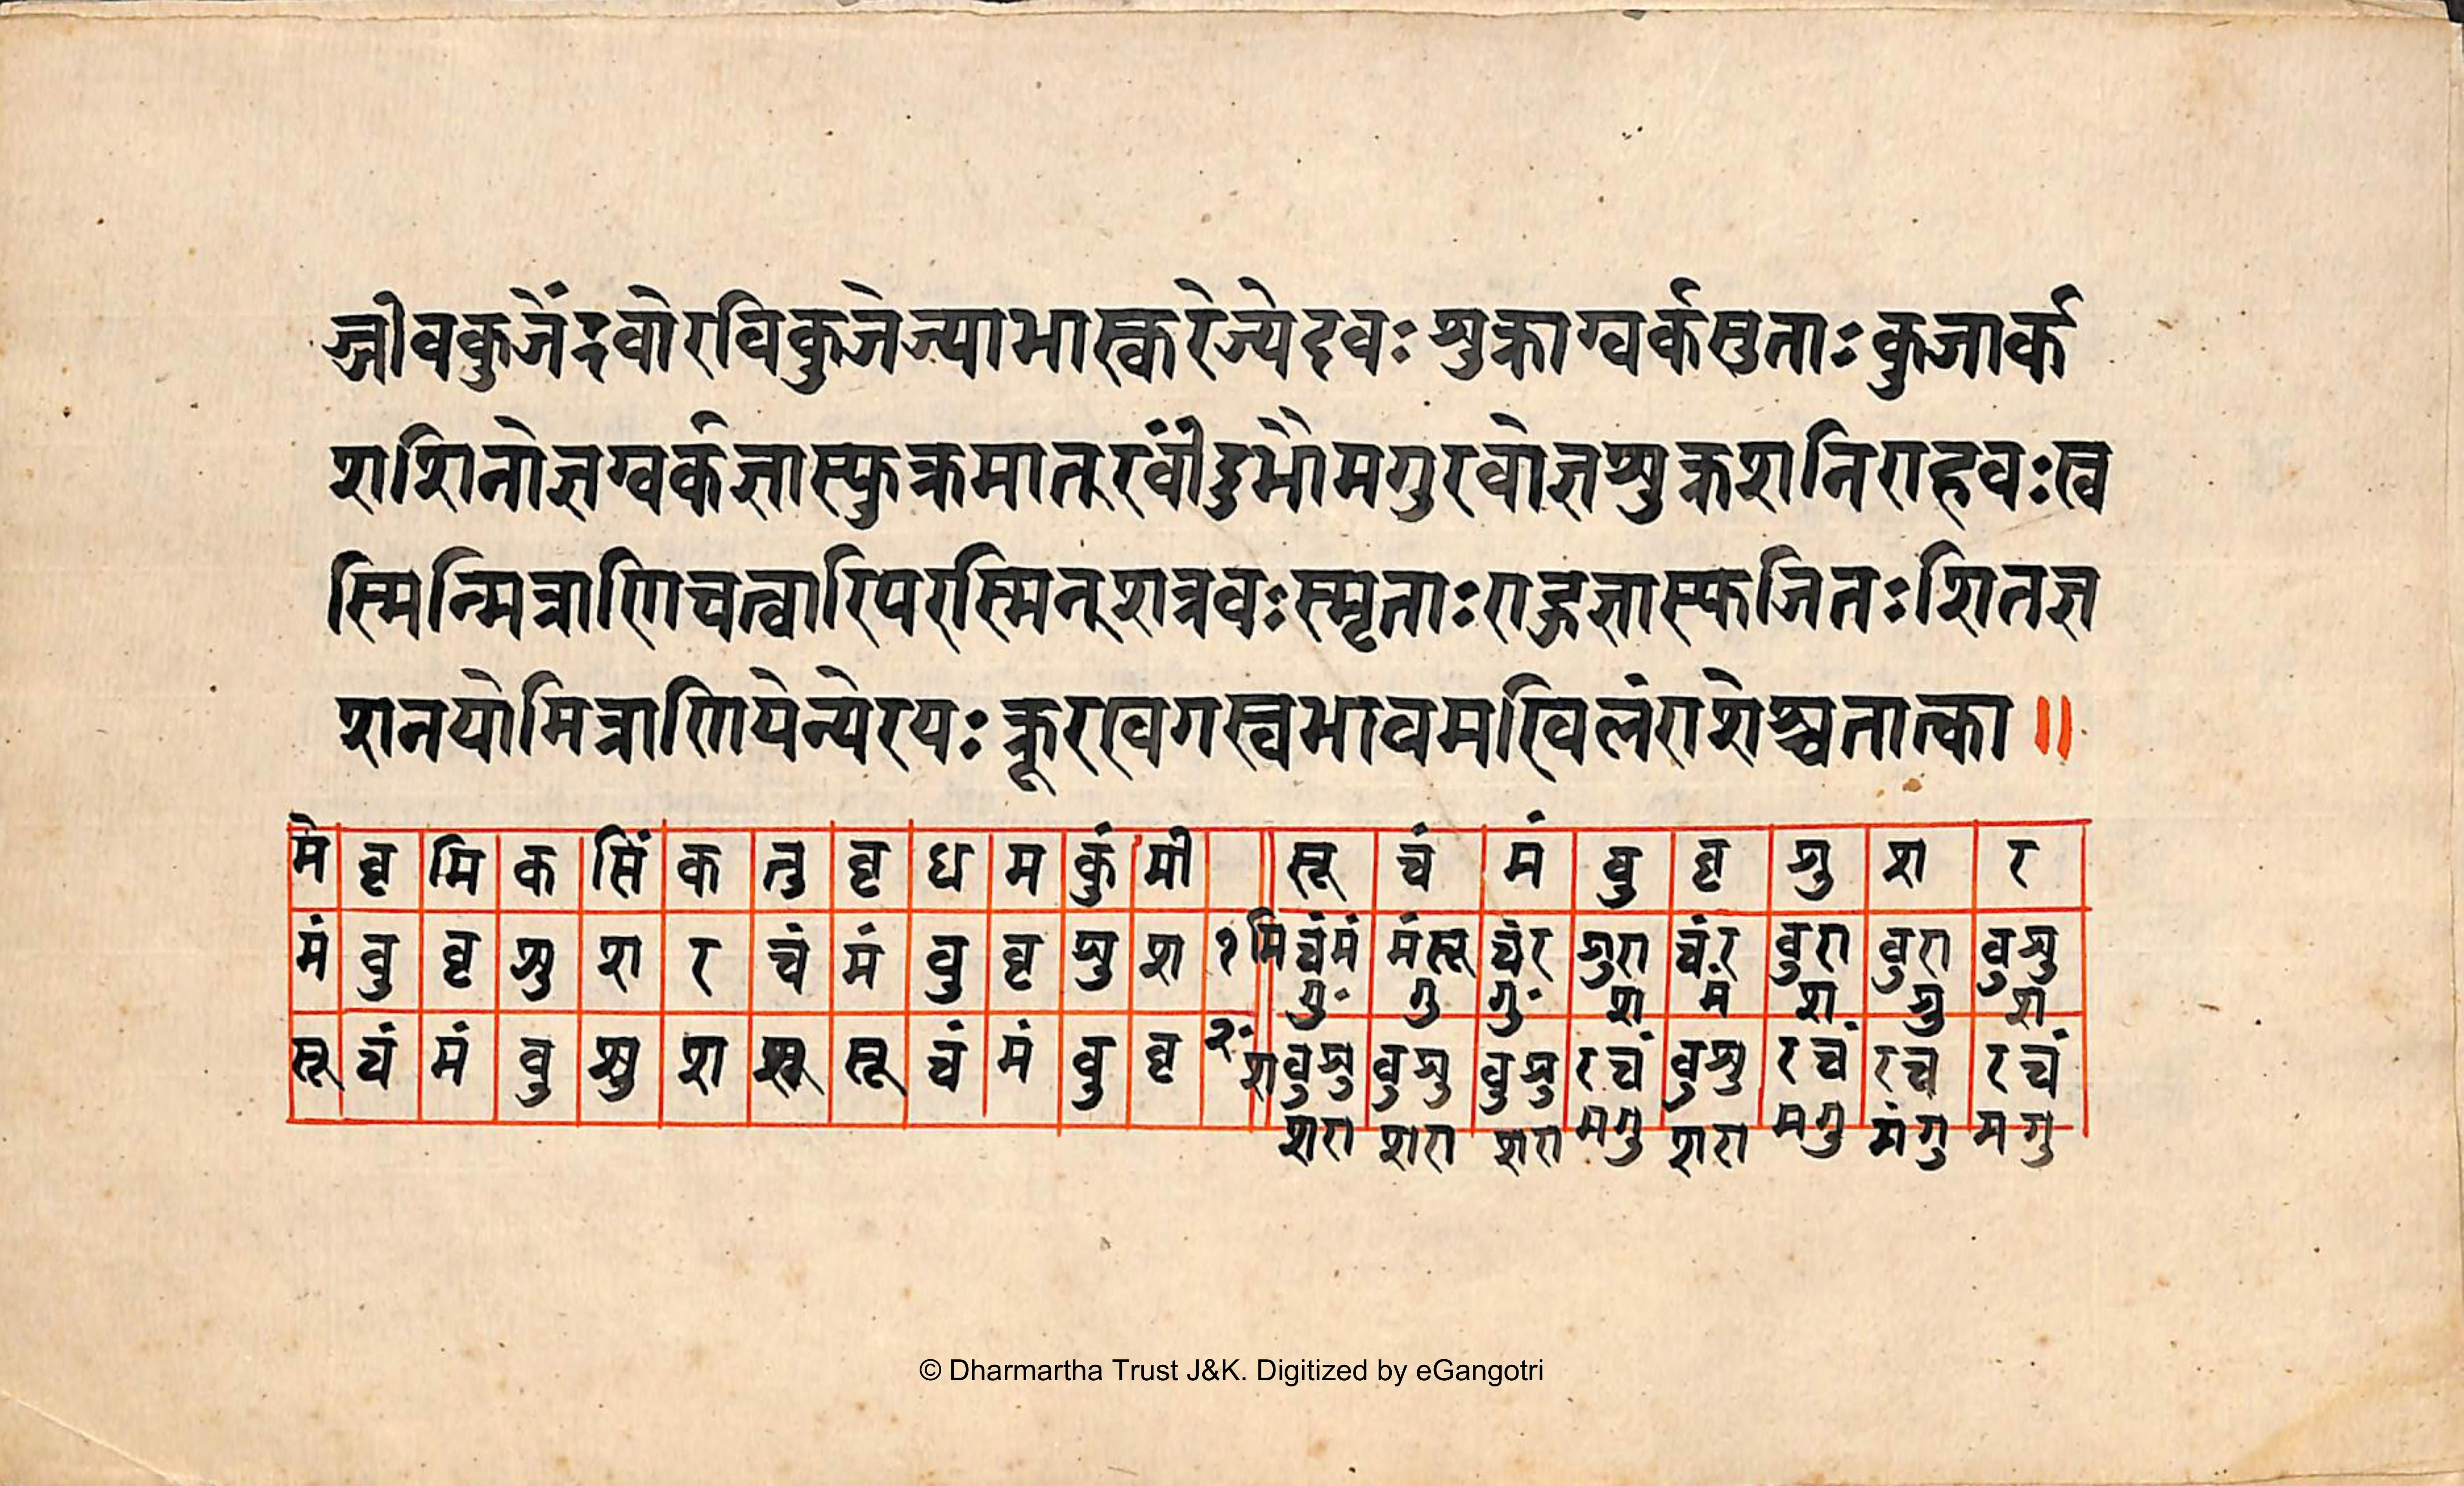 जीवकुजेंदवोरविकुजेज्याभास्करेज्येदवः शुक्राग्वर्कसुताः कुजार्क
शशिनोज्ञग्वर्कजास्फुक्रमात् रवींदुभौमगुरवोज्ञशुक्रशनिराहवः स्व
स्मिन्मित्राणिचत्वारिपरस्मिन् शत्रवः स्मृताः राहुज्ञास्फजितः शितज्ञ
शनयोमित्राणियेन्येरयः क्रूरखगस्वभावमखिलंराशेश्चतात्का ॥
मे वृ मि क सिं क तु वृ ध म कुं मी सू चं मं बु बृ शु श र
मं बु बृ शु श र चं मं बु बृ शु श १ मि चंमं मंसू चंर शुरा चंर बुरा बुरा बुशु
गु॰ गु गु॰ श मं श शु श
सू चं मं बु शु श सू चं मं बु बृ २॰ श बुशु बुशु बुशु रचं बुशु रचं रच रचं
शरा शरा शरा मगु शरा मगु मंगु मगु
© Dharmartha Trust J&K. Digitized by eGangotri